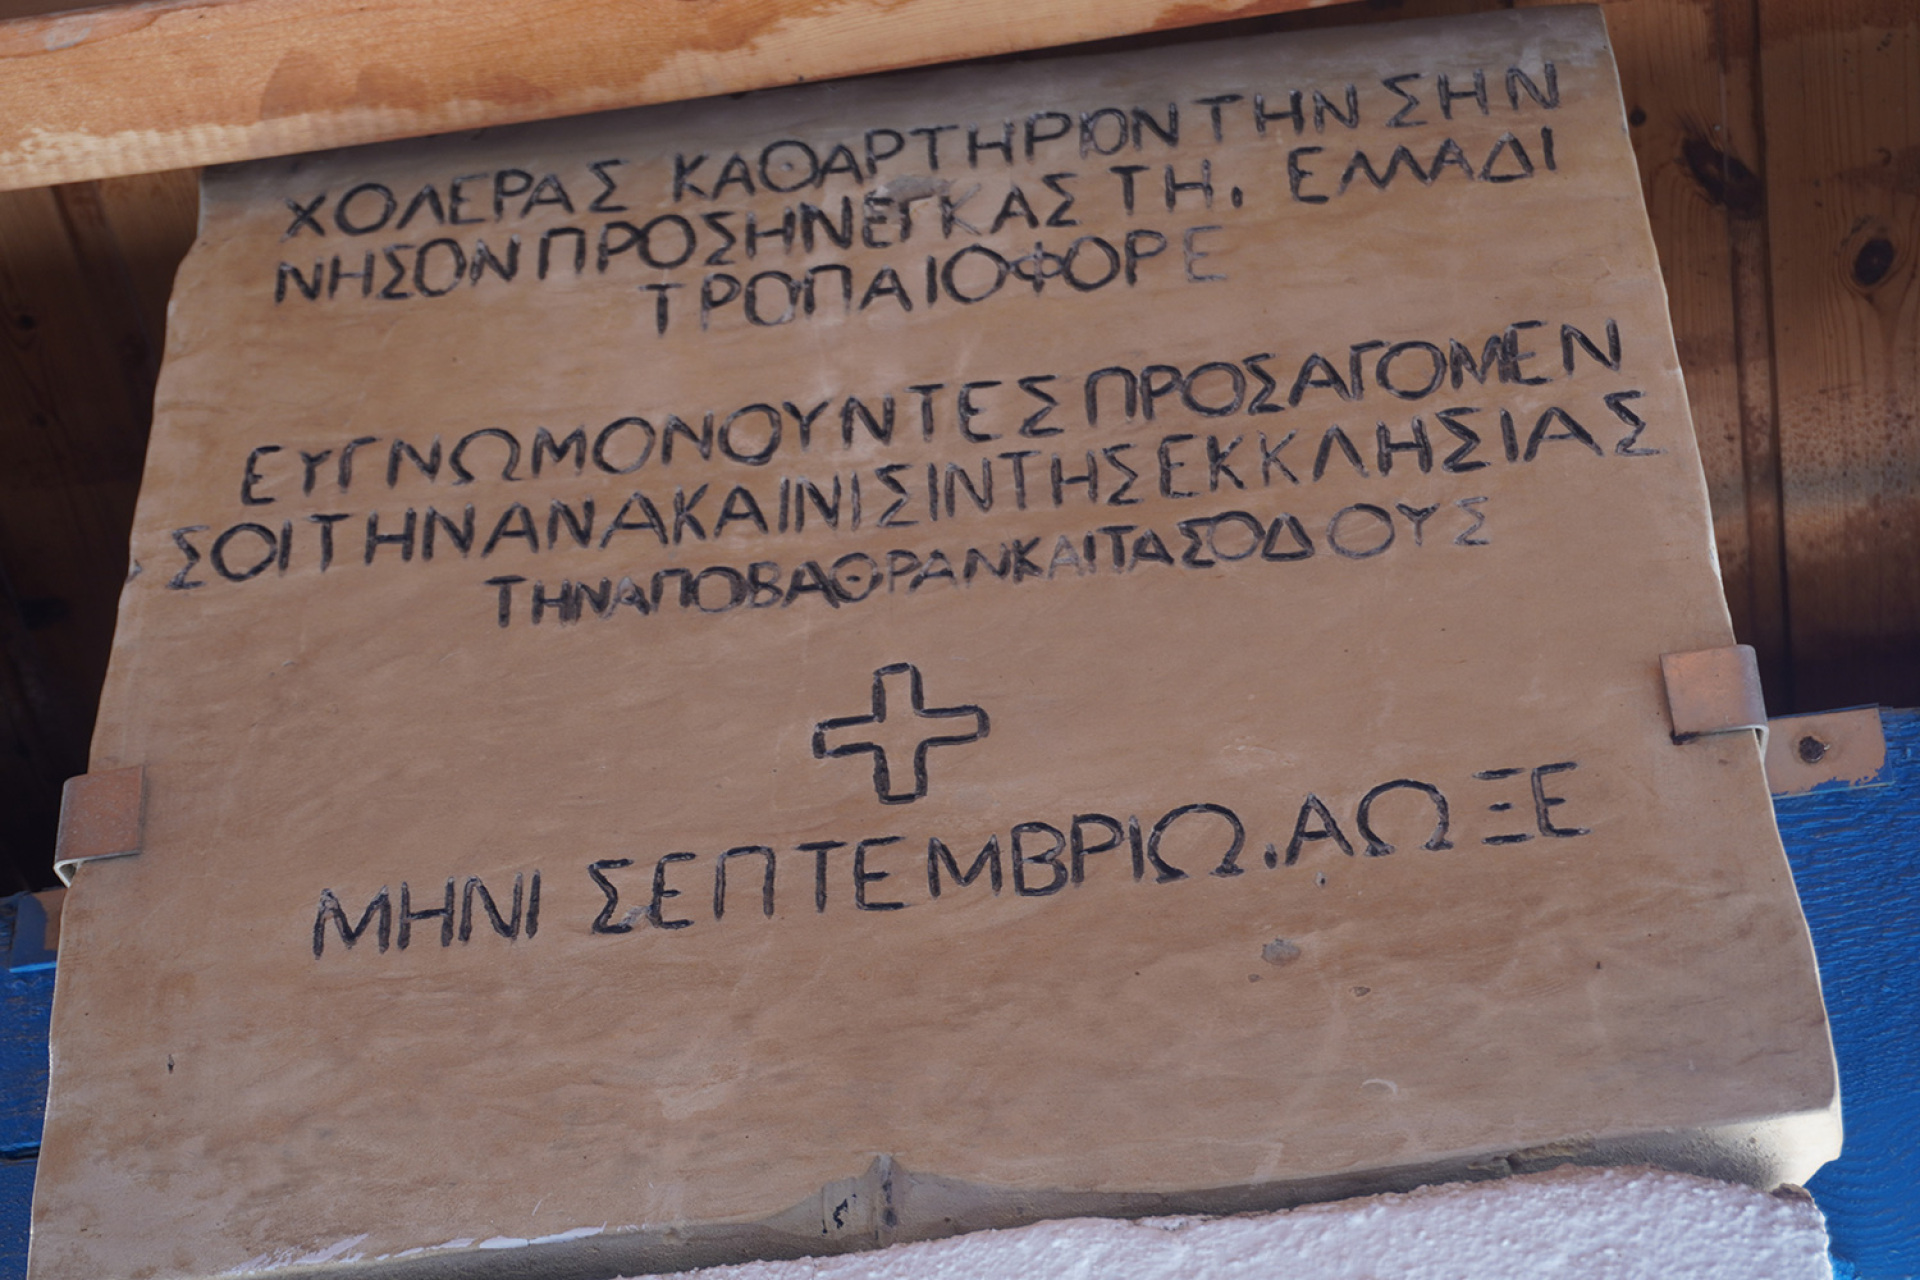 ΧΟΛΕΡΑΣ ΚΑΘΑΡΤΗΡΙΟΝ ΤΗΝ ΣΗΝ
ΝΗΣΟΝ ΠΡΟΣΗΝΕΓΚΑΣ ΤΗ. ΕΛΛΑΔΙ
ΤΡΟΠΑΙΟΦΟΡΕ
ΕΥΓΝΩΜΟΝΟΥΝΤΕΣ ΠΡΟΣΑΓΟΜΕΝ
ΣΟΙ ΤΗΝ ΑΝΑΚΑΙΝΙΣΙΝ ΤΗΣ ΕΚΚΛΗΣΙΑΣ
ΤΗΝ ΑΠΟΒΑΘΡΑΝ ΚΑΙ ΤΑΣ ΟΔΟΥΣ
ΜΗΝΙ ΣΕΠΤΕΜΒΡΙΩ. ΑΩΞΕ